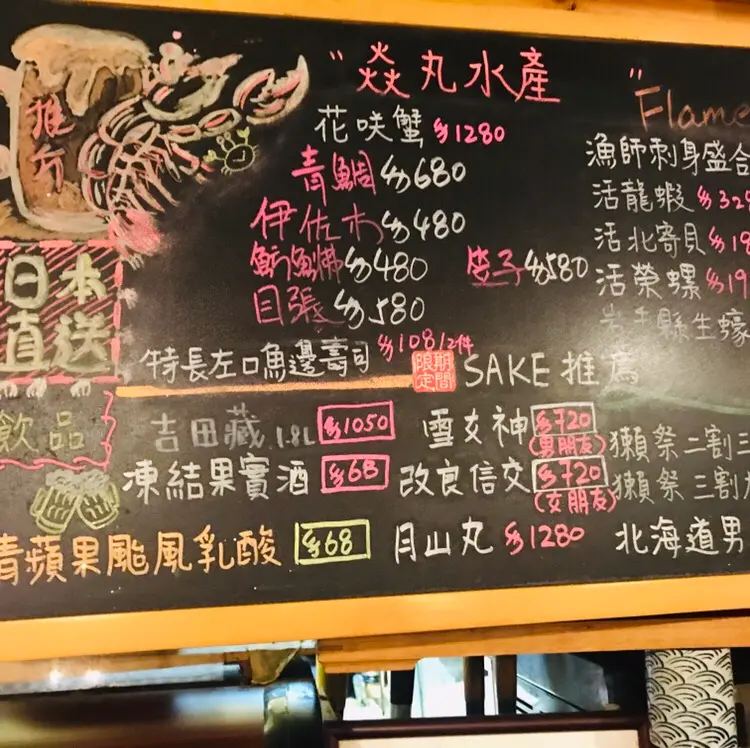 "焱丸水產"
Flame
推介
花咲蟹 $1280
青鯛 $680
伊佐木 $480
魴鮄 $480
目張 $580
笠子 $580
特長左口魚邊壽司 $108/2件
日本
直送
漁師刺身盛合
活龍蝦 $32
活北寄貝 $1
活榮螺 $1
岩手縣生蠔
期間
限定
SAKE 推薦
飲品
吉田藏 1.8L $1050
凍結果實酒 $68
青蘋果颱風乳酸 $68
雪女神 $720
(男朋友)
改良信交 $720
(女朋友)
月山丸 $1280
獺祭 二割三
獺祭 三割九
北海道男